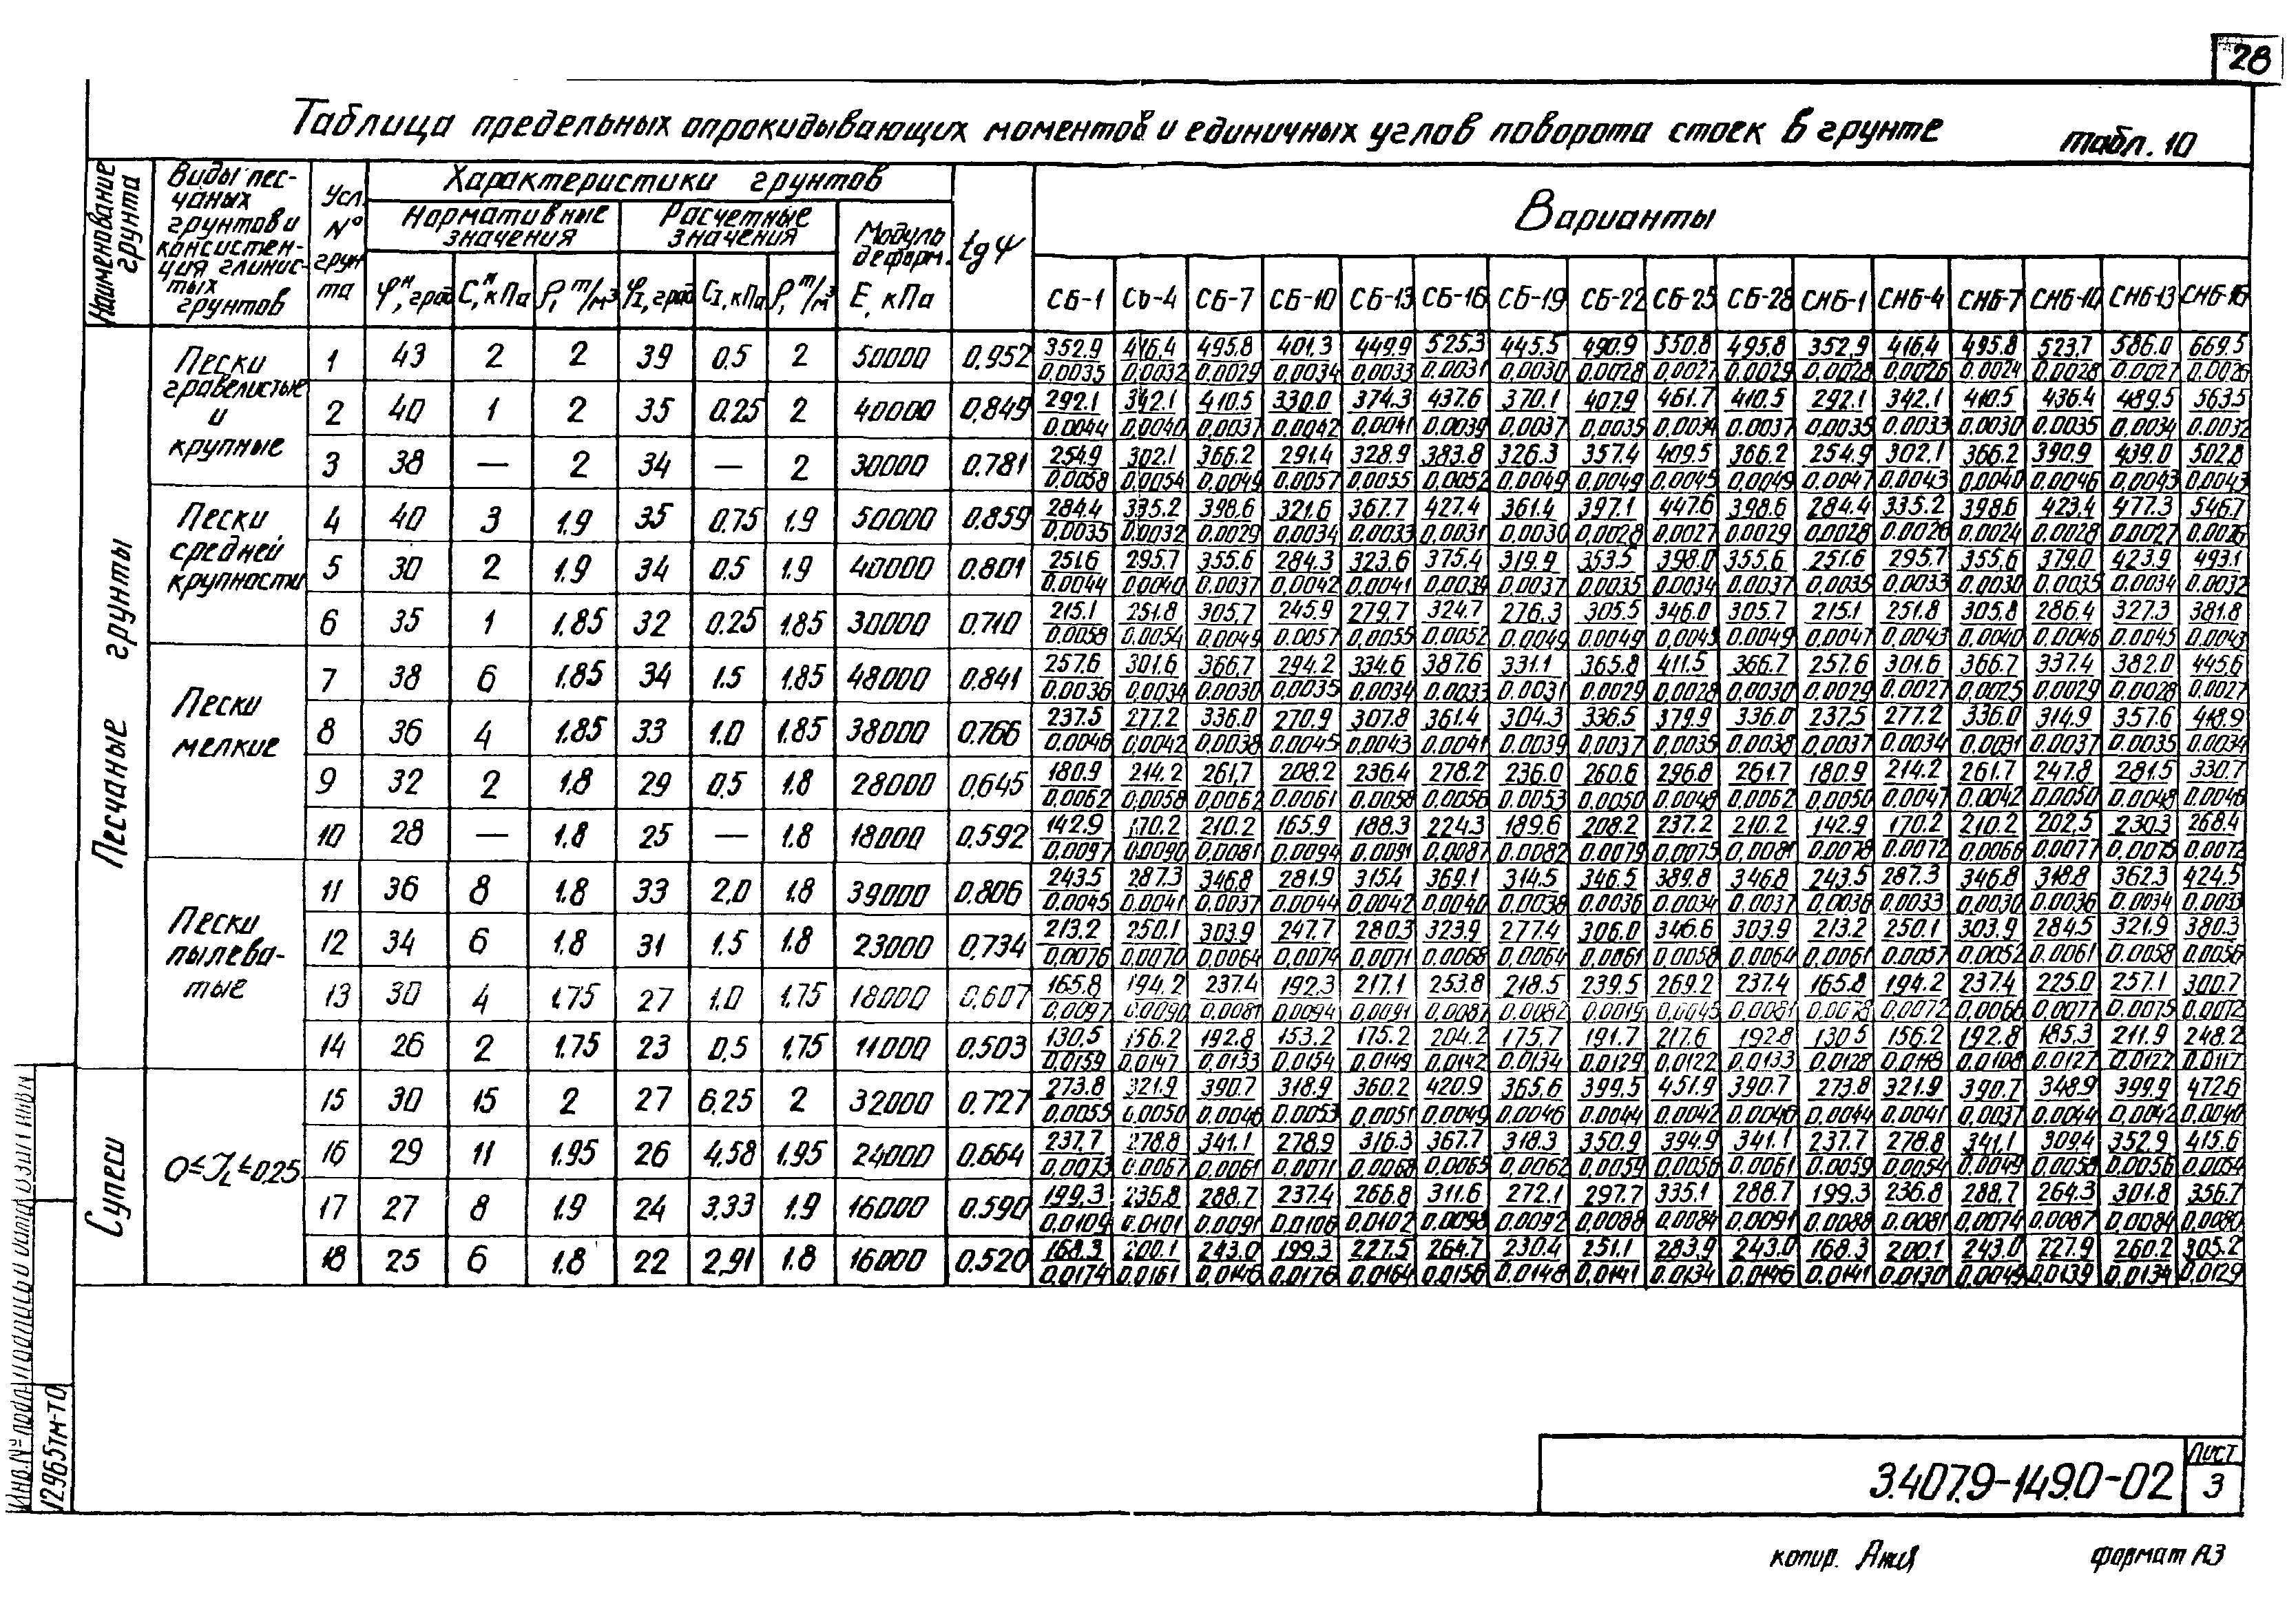 28
Таблица предельных опрокидывающих моментов и единичных углов поворота стоек в грунте табл. 10
Наименование грунта
Виды песчаных грунтов и консистенция глинистых грунтов
Усл. № грунта
Характеристики грунтов
Нормативные значения
Расчетные значения
Модуль деформ. E, кПа
tgψ
Варианты
φᴴ, град Cᴴ, кПа ρ, т/м³ φI, град CI, кПа ρ, т/м³
СБ-1 СБ-4 СБ-7 СБ-10 СБ-13 СБ-16 СБ-19 СБ-22 СБ-25 СБ-28 СНБ-1 СНБ-4 СНБ-7 СНБ-10 СНБ-13 СНБ-16
Песчаные грунты
Пески гравелистые и крупные
1 43 2 2 39 0,5 2 50000 0,952 352.9 416.4 495.8 401.3 449.9 525.3 445.5 490.9 550.8 495.8 352.9 416.4 495.8 523.7 586.0 669.5
0.0035 0.0032 0.0029 0.0034 0.0033 0.0031 0.0030 0.0028 0.0027 0.0029 0.0028 0.0026 0.0024 0.0028 0.0027 0.0026
2 40 1 2 35 0.25 2 40000 0,849 292.1 342.1 410.5 330.0 374.3 437.6 370.1 407.9 461.7 410.5 292.1 342.1 410.5 436.4 489.5 563.5
0.0044 0.0040 0.0037 0.0042 0.0041 0.0039 0.0037 0.0035 0.0034 0.0037 0.0035 0.0033 0.0030 0.0035 0.0034 0.0032
3 38 — 2 34 — 2 30000 0.781 254.9 302.1 366.2 291.4 328.9 383.8 326.3 357.4 409.5 366.2 254.9 302.1 366.2 390.9 439.0 502.8
0.0058 0.0054 0.0049 0.0057 0.0055 0.0052 0.0049 0.0049 0.0045 0.0049 0.0047 0.0043 0.0040 0.0046 0.0043 0.0043
Пески средней крупности
4 40 3 1.9 35 0.75 1.9 50000 0.859 284.4 335.2 398.6 321.6 367.7 427.4 361.4 397.1 447.6 398.6 284.4 335.2 398.6 423.4 477.3 546.7
0.0035 0.0032 0.0029 0.0034 0.0033 0.0031 0.0030 0.0028 0.0027 0.0029 0.0028 0.0026 0.0024 0.0028 0.0027 0.0026
5 30 2 1.9 34 0.5 1.9 40000 0.801 251.6 295.7 355.6 284.3 323.6 375.4 319.9 353.5 398.0 355.6 251.6 295.7 355.6 379.0 423.9 493.1
0.0044 0.0040 0.0037 0.0042 0.0041 0.0039 0.0037 0.0035 0.0034 0.0037 0.0035 0.0033 0.0030 0.0035 0.0034 0.0032
6 35 1 1.85 32 0.25 1.85 30000 0.710 215.1 251.8 305.7 245.9 279.7 324.7 276.3 305.5 346.0 305.7 215.1 251.8 305.8 286.4 327.3 381.8
0.0058 0.0054 0.0049 0.0057 0.0055 0.0052 0.0049 0.0049 0.0045 0.0049 0.0047 0.0043 0.0040 0.0046 0.0045 0.0043
Пески мелкие
7 38 6 1.85 34 1.5 1.85 48000 0.841 257.6 301.6 366.7 294.2 334.6 387.6 331.1 365.8 411.5 366.7 257.6 301.6 366.7 337.4 382.0 445.6
0.0036 0.0034 0.0030 0.0035 0.0034 0.0033 0.0031 0.0029 0.0028 0.0030 0.0029 0.0027 0.0025 0.0029 0.0028 0.0027
8 36 4 1.85 33 1.0 1.85 38000 0.766 237.5 277.2 336.0 270.9 307.8 361.4 304.3 336.5 379.9 336.0 237.5 277.2 336.0 314.9 357.6 418.9
0.0046 0.0042 0.0038 0.0045 0.0043 0.0041 0.0039 0.0037 0.0035 0.0038 0.0037 0.0034 0.0031 0.0037 0.0035 0.0034
9 32 2 1.8 29 0.5 1.8 28000 0.645 180.9 214.2 261.7 208.2 236.4 278.2 236.0 260.6 296.8 261.7 180.9 214.2 261.7 247.8 281.5 330.7
0.0062 0.0058 0.0062 0.0061 0.0058 0.0056 0.0053 0.0050 0.0048 0.0062 0.0050 0.0047 0.0042 0.0050 0.0048 0.0046
10 28 — 1.8 25 — 1.8 18000 0.592 142.9 170.2 210.2 165.9 188.3 224.3 189.6 208.2 237.2 210.2 142.9 170.2 210.2 202.5 230.3 268.4
0.0097 0.0090 0.0081 0.0094 0.0091 0.0087 0.0082 0.0079 0.0075 0.0081 0.0078 0.0072 0.0066 0.0077 0.0075 0.0072
Пески пылеватые
11 36 8 1.8 33 2,0 1.8 39000 0.806 243.5 287.3 346.8 281.9 315.4 369.1 314.5 346.5 389.8 346.8 243.5 287.3 346.8 318.8 362.3 424.5
0.0045 0.0041 0.0037 0.0044 0.0042 0.0040 0.0038 0.0036 0.0034 0.0037 0.0036 0.0033 0.0030 0.0036 0.0034 0.0033
12 34 6 1.8 31 1.5 1.8 23000 0,734 213.2 250.1 303.9 247.7 280.3 323.9 277.4 306.0 346.6 303.9 213.2 250.1 303.9 284.5 321.9 380.3
0.0076 0.0070 0.0064 0.0074 0.0071 0.0068 0.0064 0.0061 0.0058 0.0064 0.0061 0.0057 0.0052 0.0061 0.0058 0.0056
13 30 4 1.75 27 1.0 1.75 18000 0.607 165.8 194.2 237.4 192.3 217.1 253.8 218.5 239.5 269.2 237.4 165.8 194.2 237.4 225.0 257.1 300.7
0.0097 0.0090 0.0081 0.0094 0.0091 0.0087 0.0082 0.0081 0.0078 0.0072 0.0066 0.0077 0.0075 0.0072
14 26 2 1.75 23 0,5 1.75 11000 0.503 130.5 156.2 192.8 153.2 175.2 204.2 175.7 191.7 217.6 192.8 130.5 156.2 192.8 185.3 211.9 248.2
0.0159 0.0147 0.0133 0.0154 0.0149 0.0142 0.0134 0.0129 0.0122 0.0133 0.0128 0.0118 0.0108 0.0127 0.0122 0.0117
Супеси
0≤JL≤0,25
15 30 15 2 27 6.25 2 32000 0.727 273.8 321.9 390.7 318.9 360.2 420.9 365.6 399.5 451.9 390.7 273.8 321.9 390.7 348.9 399.9 472.6
0.0055 0.0050 0.0046 0.0053 0.0051 0.0049 0.0046 0.0044 0.0042 0.0046 0.0044 0.0041 0.0037 0.0044 0.0042 0.0040
16 29 11 1.95 26 4,58 1.95 24000 0.664 237.7 278.8 341.1 278.9 316.3 367.7 318.3 350.9 394.9 341.1 237.7 278.8 341.1 309.4 352.9 415.6
0.0073 0.0067 0.0061 0.0071 0.0068 0.0065 0.0062 0.0059 0.0056 0.0061 0.0059 0.0054 0.0049 0.0058 0.0056 0.0054
17 27 8 1.9 24 3,33 1.9 16000 0.590 199.3 236.8 288.7 237.4 266.8 311.6 272.1 297.7 335.1 288.7 199.3 236.8 288.7 264.3 301.8 356.7
0.0109 0.0101 0.0091 0.0106 0.0102 0.0098 0.0092 0.0088 0.0084 0.0091 0.0088 0.0081 0.0074 0.0087 0.0084 0.0080
18 25 6 1.8 22 2,91 1.8 16000 0.520 168.3 200.1 243.0 199.3 227.5 264.7 230.4 251.1 283.9 243.0 168.3 200.1 243.0 227.9 260.2 305.2
0.0174 0.0161 0.0146 0.0176 0.0164 0.0156 0.0148 0.0141 0.0134 0.0146 0.0141 0.0130 0.0049 0.0139 0.0134 0.0129
Инв.№ подл. Подпись и дата Взам инв N
12965тм-Т0
3.407.9-149.0-02
Лист
3
копир.
формат А3